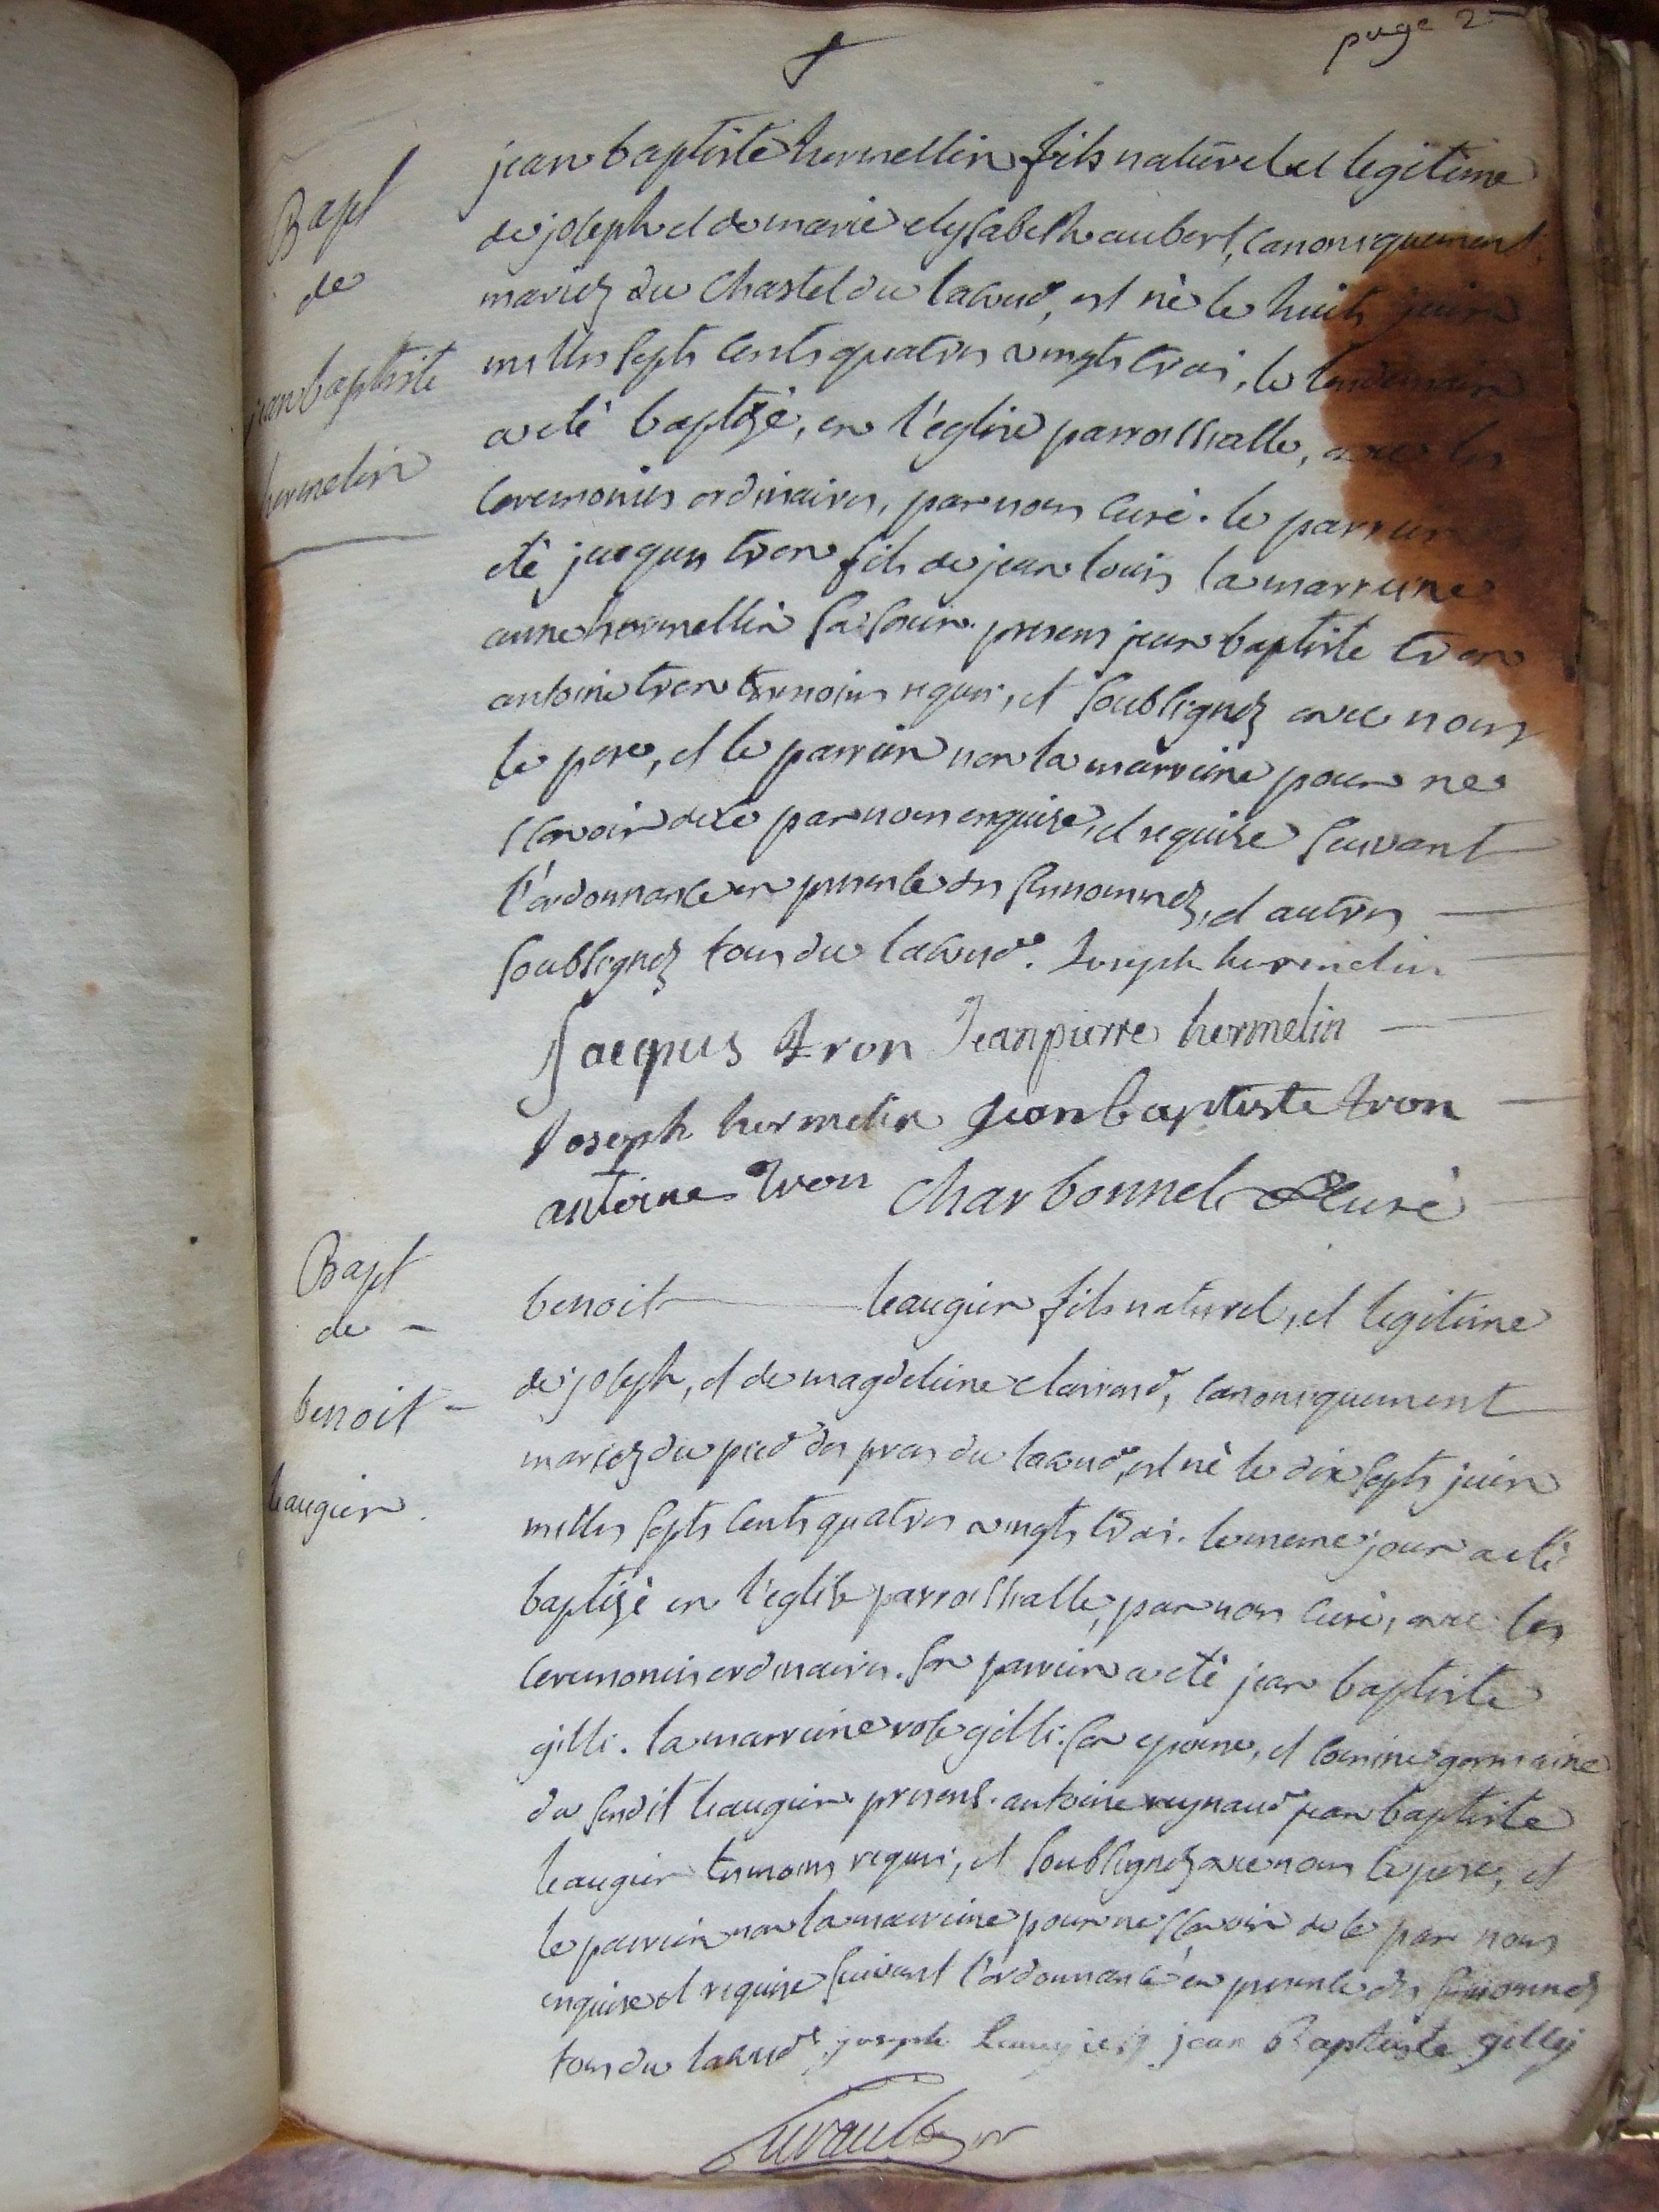 page 2
Bapt
de
jean baptiste
hermelin
jean baptiste hermellin fils naturel et legitime
de joseph et de marie elysabeth aubert, canoniquement
mariez du Chastel du lavend, est nè le huits juin
milles septs cents quatres vingts troi, le lendemain
a etè baptizè, en l'èglise parroissialle, avec les
ceremonies ordinaires, par nous curè. le parrein
etè jacques tron fils de jean louis la marreine
anne hermellin sa soeur. presens jean baptiste tron
antoine tron temoins requi, et soubsignez avec nous
le pere, et le parrein non la marreine pour ne
scavoir de ce par nous enquise, et requise suivant
l'ordonnance en presence des susnommez, et autres
soubsignez tous du lavend. Joseph hermelin
Jacques tron Jean pierre hermelin
Joseph hermelin jean baptiste tron
antoine tron Charbonnel Curè
Bapt
de
benoit
leaugier.
benoit leaugier fils naturel, et legitime
de joseph, et de magdeleine clarrond, canoniquement
mariez du pied des pras du lavend, est nè le dix septs juin
milles septs cents quatres vingts troi. le meme jour a etè
baptizè en l'eglise parroissialle, par nous curè, avec les
ceremonies ordinaires. son parrein a etè jean baptiste
gilli. la marreine rose gilli. son epouse, et cousine germaine
du susdit leaugier. presens. antoine reynaud jean baptiste
leaugier temoins requi, et soubsignez avec nous le pere, et
le parrein non la marreine pour ne scavoir de ce par nous
enquise et requise suivant l'ordonnance en presence des susnommez
tous du lavend joseph leaugier jean Baptiste gilly